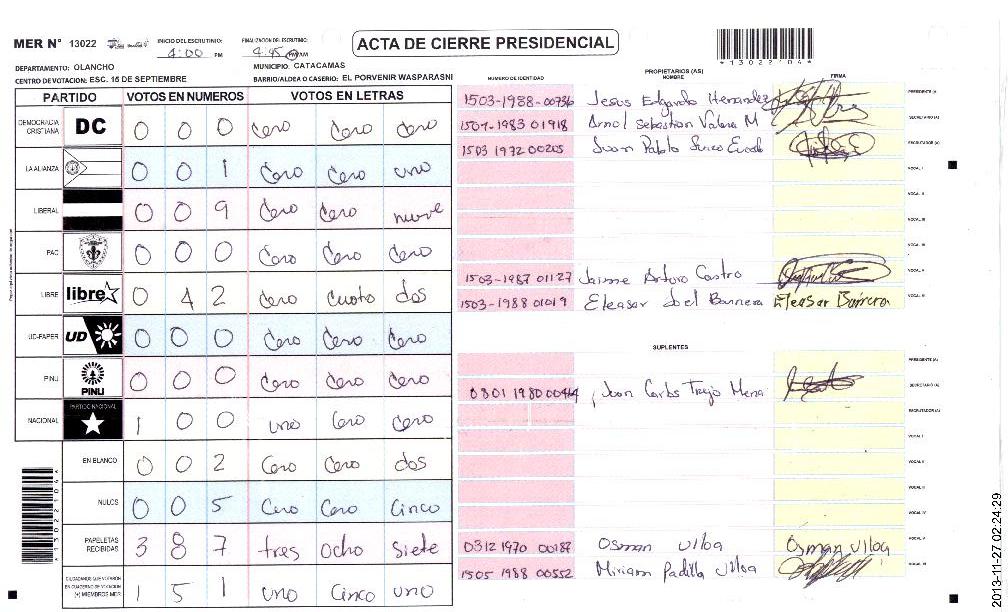 MER N° 13022 INICIO DEL ESCRUTINIO: 4:00 PM FINALIZACION DEL ESCRUTINIO: 4:45 PM/AM ACTA DE CIERRE PRESIDENCIAL
*13022104*
DEPARTAMENTO: OLANCHO MUNICIPIO: CATACAMAS
CENTRO DE VOTACION: ESC. 15 DE SEPTIEMBRE BARRIO/ALDEA O CASERIO: EL PORVENIR WASPARASNI
PARTIDO VOTOS EN NUMEROS VOTOS EN LETRAS
DEMOCRACIA CRISTIANA DC 0 0 0 Cero Cero Cero
LA ALIANZA 0 0 1 Cero Cero uno
LIBERAL 0 0 9 Cero Cero nueve
PAC 0 0 0 Cero Cero Cero
LIBRE libre 0 4 2 Cero Cuatro dos
UD-FAPER UD 0 0 0 Cero Cero Cero
PINU PINU 0 0 0 Cero Cero Cero
NACIONAL PARTIDO NACIONAL 1 0 0 uno Cero Cero
EN BLANCO 0 0 2 Cero Cero dos
NULOS 0 0 5 Cero Cero Cinco
PAPELETAS RECIBIDAS 3 8 7 tres ocho siete
CIUDADANOS QUE VOTARON EN CUADERNO DE VOTACION (+) MIEMBROS MER 1 5 1 uno Cinco uno
*13022104*
NUMERO DE IDENTIDAD PROPIETARIOS (AS) NOMBRE FIRMA
1503-1988-00736 Jesus Edgardo Hernandez PRESIDENTE (A)
1501-1983 01918 Arnol Sebastian Valera M SECRETARIO (A)
1503 1972 00205 Juan Pablo ESCRUTADOR (A)
VOCAL I
VOCAL II
VOCAL III
VOCAL IV
1503-1987 01127 Jaime Arturo Castro VOCAL V
1503-1988 01019 Eleasar Joel Barrera Eleasar Barrera VOCAL VI
SUPLENTES
PRESIDENTE (A)
0801 1980 00464 Juan Carlos Trejo Mena SECRETARIO (A)
ESCRUTADOR (A)
VOCAL I
VOCAL II
VOCAL III
VOCAL IV
0312 1970 00187 Osman Ulloa Osman Ulloa VOCAL V
1505 1988 00552 Miriam Padilla Ulloa VOCAL VI
2013-11-27 02:24:29